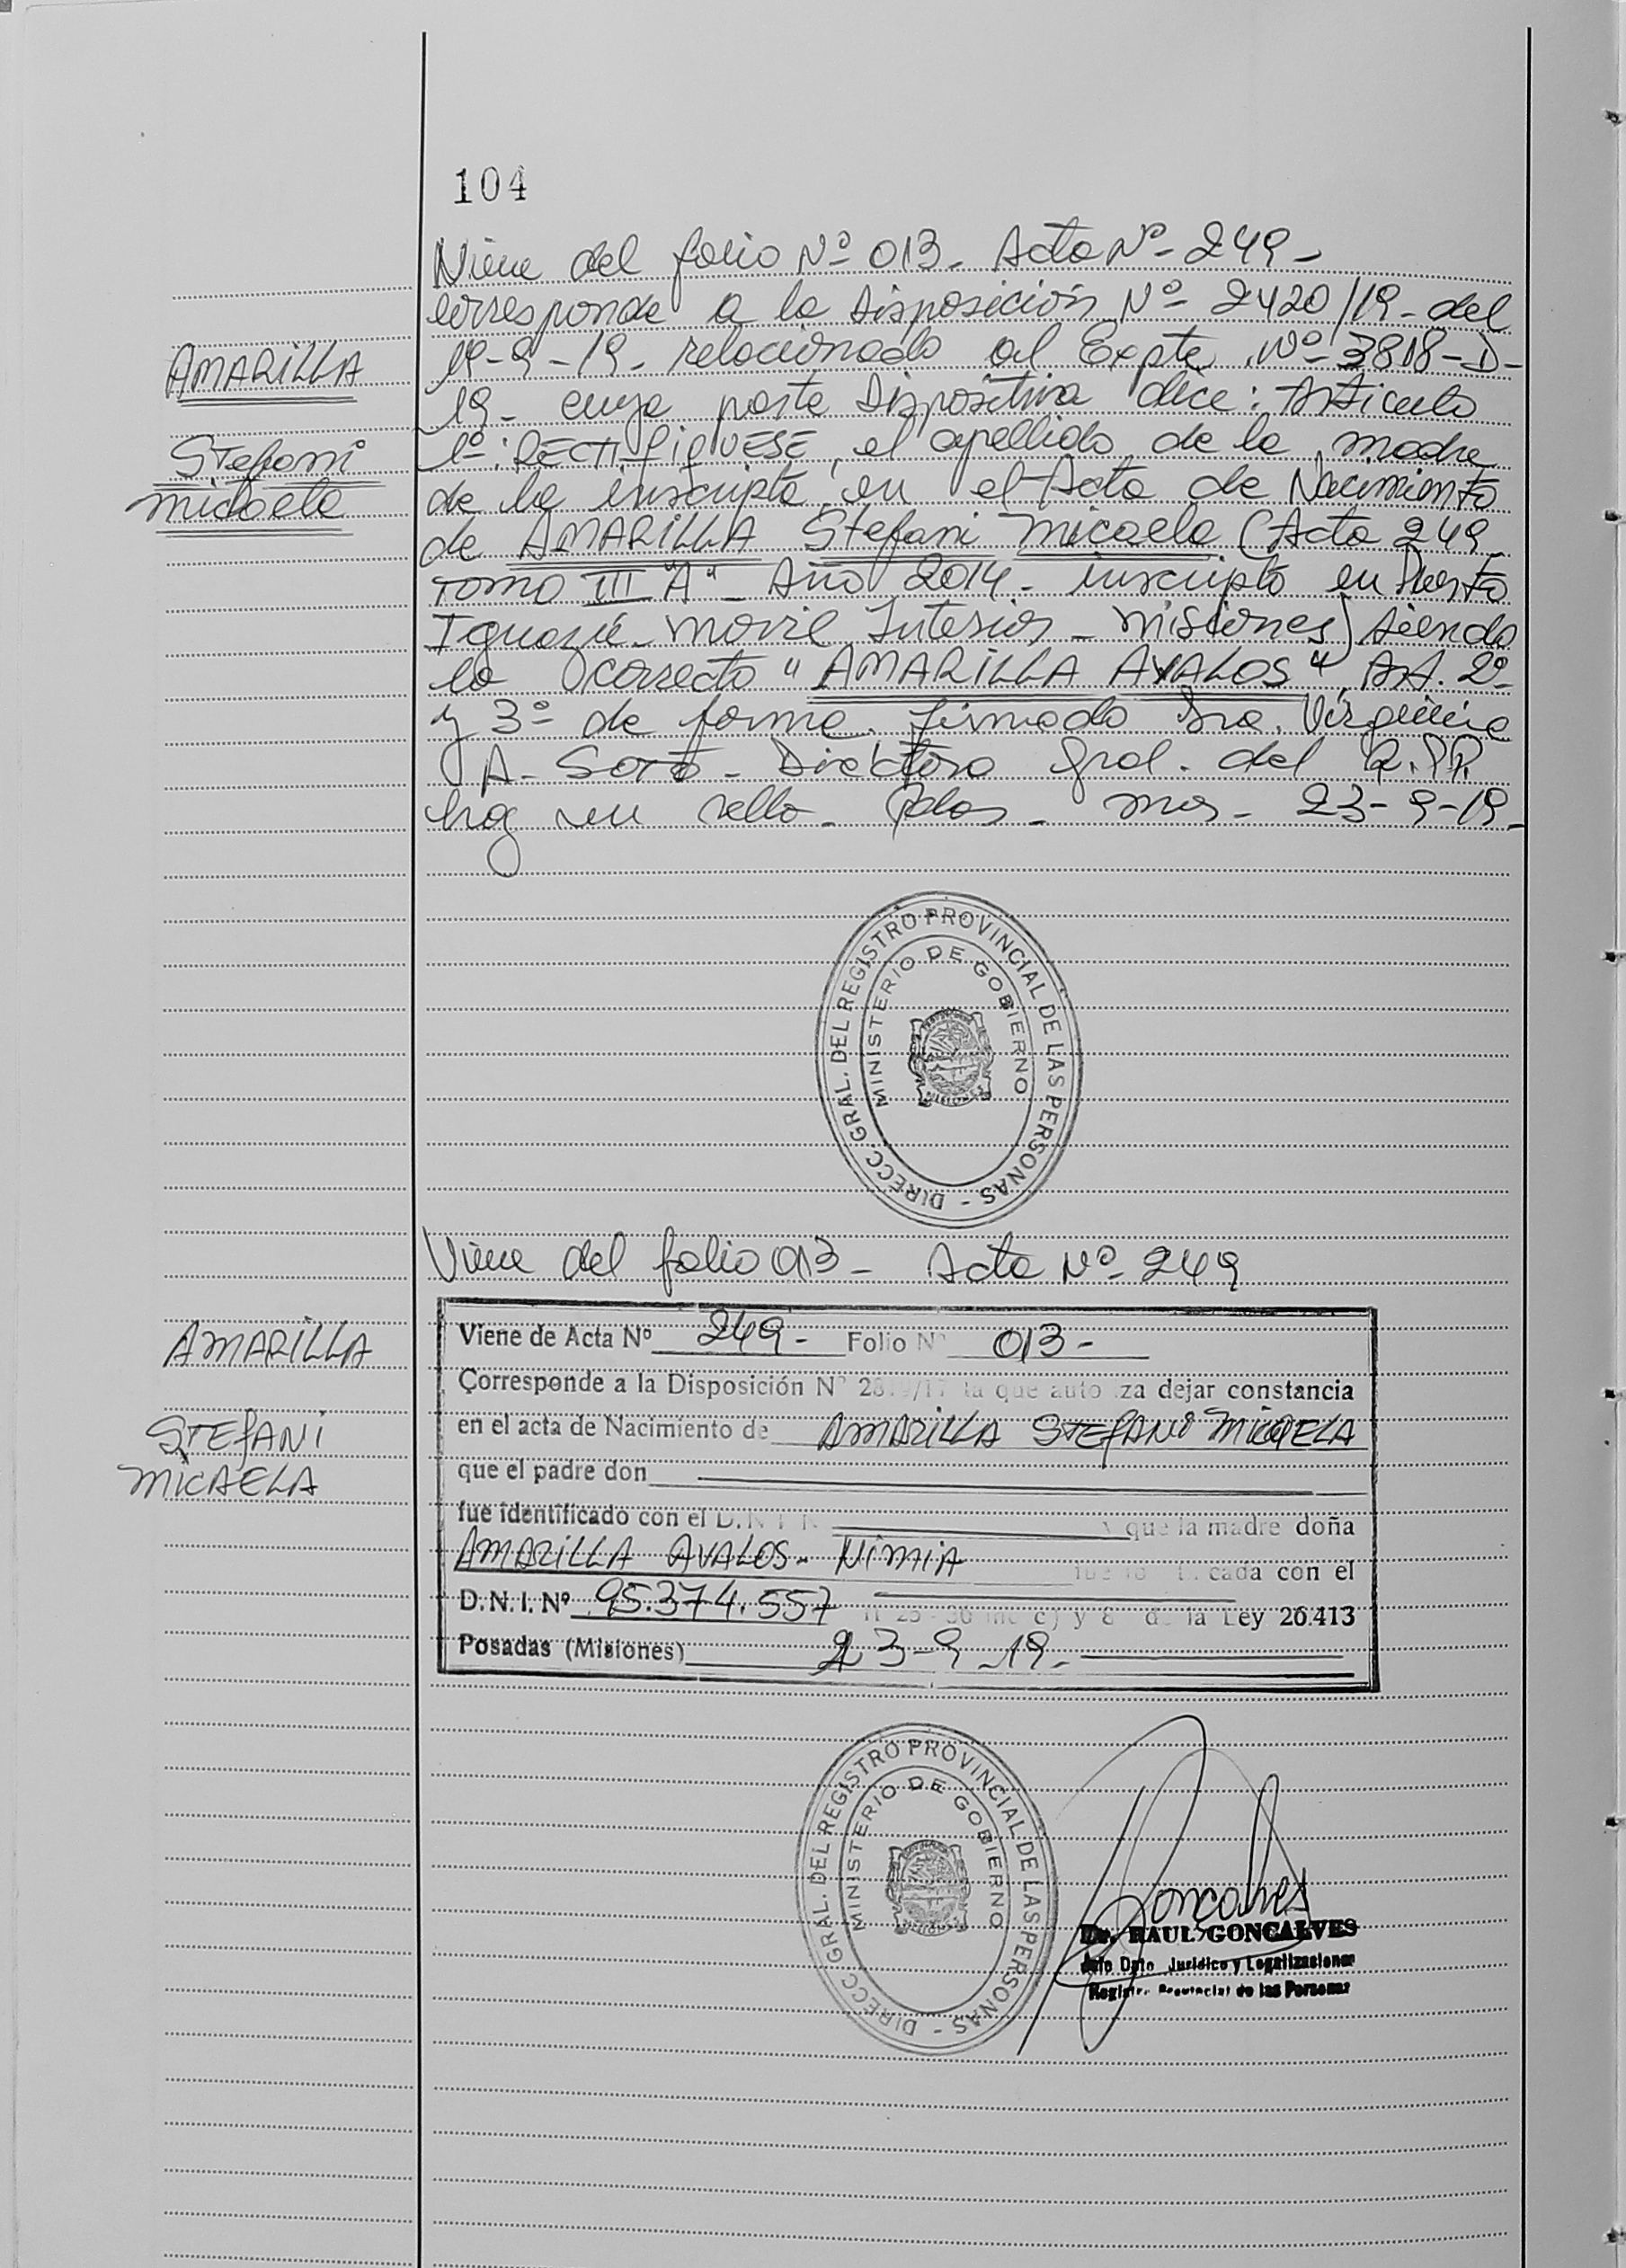 104
Viene del folio Nº 013 - Acta Nº - 249 -
corresponde a la Disposición Nº 2420/19 - del
AMARILLA
19-9-19 - relacionado al Expte. Nº 3818-D-
19 - cuya parte Dispositiva dice: Articulo
Stefani
1º: RECTIFIQUESE, el apellido de la madre
micaela
de la inscripta en el Acta de Nacimiento
de AMARILLA Stefani Micaela (Acta 249
TOMO III "A" - Año 2014 - inscripta en Puerto
Iguazú - Movil Interior - Misiones) siendo
lo correcto "AMARILLA AVALOS". Art. 2º
y 3º de forma. Firmado Dra. Virginia
A. Soto - Directora Gral. del R.P.P.
hay un sello. Pdas. - Mnes - 23-9-19 -
DIRECC. GRAL. DEL REGISTRO PROVINCIAL DE LAS PERSONAS -
MINISTERIO DE GOBIERNO
MISIONES
Viene del folio 013 - Acta Nº 249
Viene de Acta Nº 249 - Folio Nº 013 -
AMARILLA
Corresponde a la Disposición Nº la que autoriza dejar constancia
STEFANI
en el acta de Nacimiento de AMARILLA STEFANI MICAELA
MICAELA
que el padre don
fue identificado con el D.N.I. N y que la madre doña
AMARILLA AVALOS - NIMIA cada con el
D.N.I. Nº 95.374.557 y 8 de la Ley 26.413
Posadas (Misiones) 23-9-19 -
DIRECC. GRAL. DEL REGISTRO PROVINCIAL DE LAS PERSONAS -
MINISTERIO DE GOBIERNO
Goncalves
Dr. RAUL GONCALVES
Jefe Dpto. Jurídico y Legalizaciones
Registro Provincial de las Personas